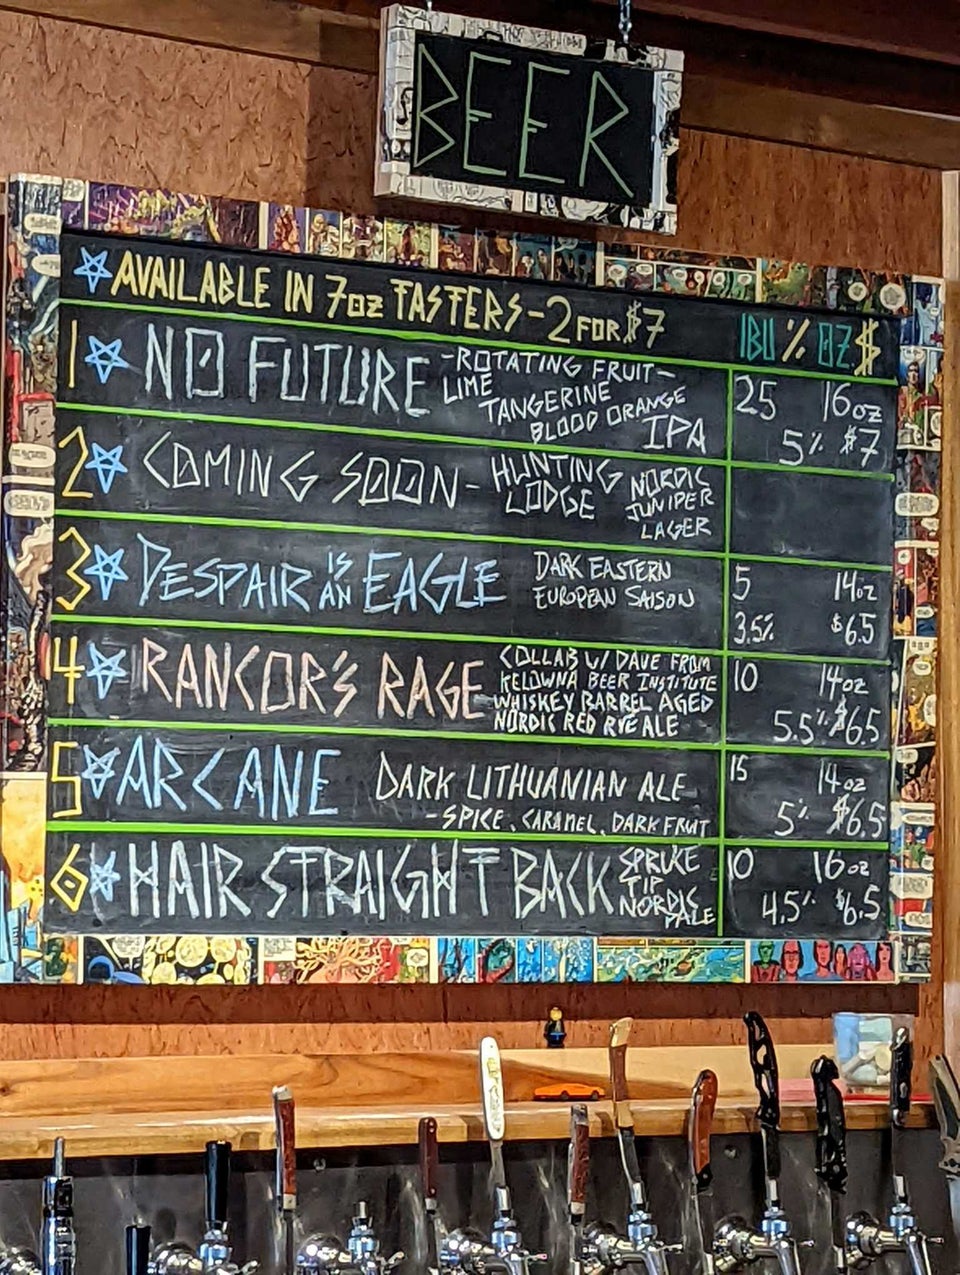 BEER
AVAILABLE IN 7oz TASTERS - 2 FOR $7
IBU % OZ $
1 NO FUTURE - ROTATING FRUIT -
LIME
TANGERINE
BLOOD ORANGE
IPA
25 16oz
5% $7
2 COMING SOON - HUNTING LODGE
NORDIC
JUNIPER
LAGER
3 DESPAIR IS AN EAGLE
DARK EASTERN
EUROPEAN SAISON
5 14oz
3.5% $6.5
4 RANCOR'S RAGE
COLLAB W/ DAVE FROM
KELOWNA BEER INSTITUTE
WHISKEY BARREL AGED
NORDIC RED RYE ALE
10 14oz
5.5% $6.5
5 ARCANE DARK LITHUANIAN ALE
- SPICE, CARAMEL, DARK FRUIT
15 14oz
5% $6.5
6 HAIR STRAIGHT BACK
SPRUCE
TIP
NORDIC
PALE
10 16oz
4.5% $6.5